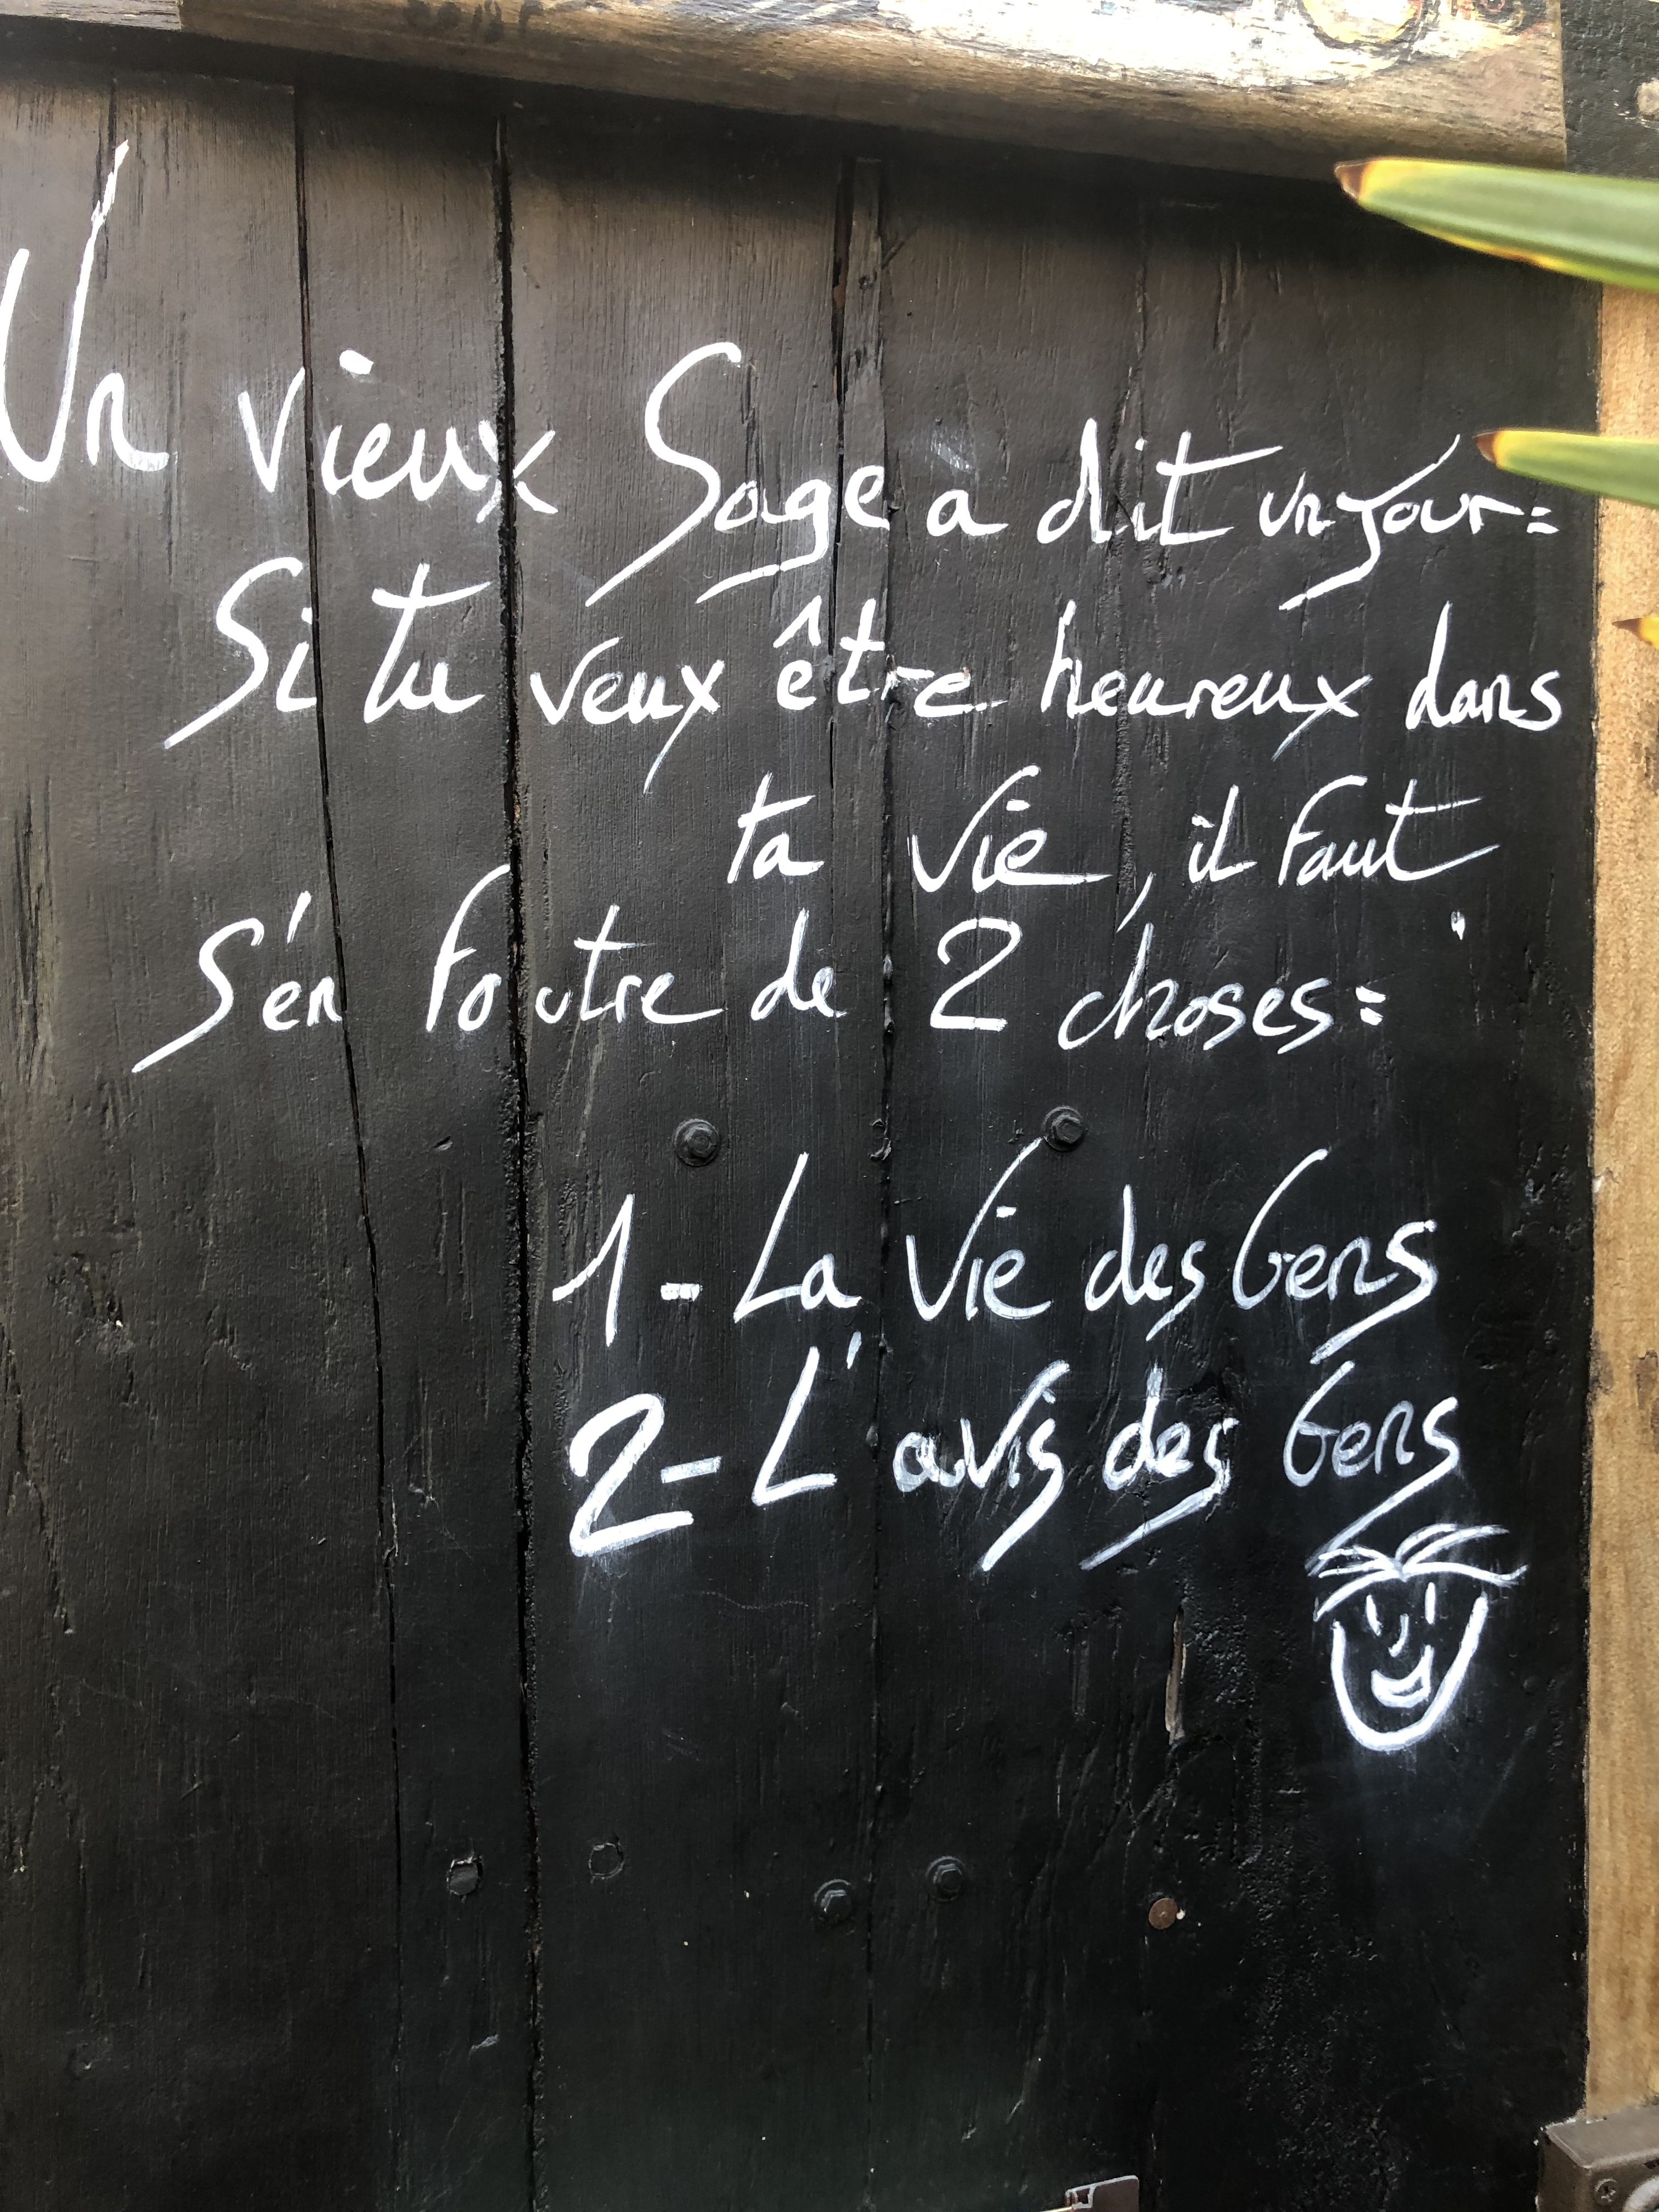 Un vieux Sage a dit un jour:
Si tu veux être heureux dans
ta vie, il faut
s'en foutre de 2 choses:
1- La vie des Gens
2- L'avis des Gens